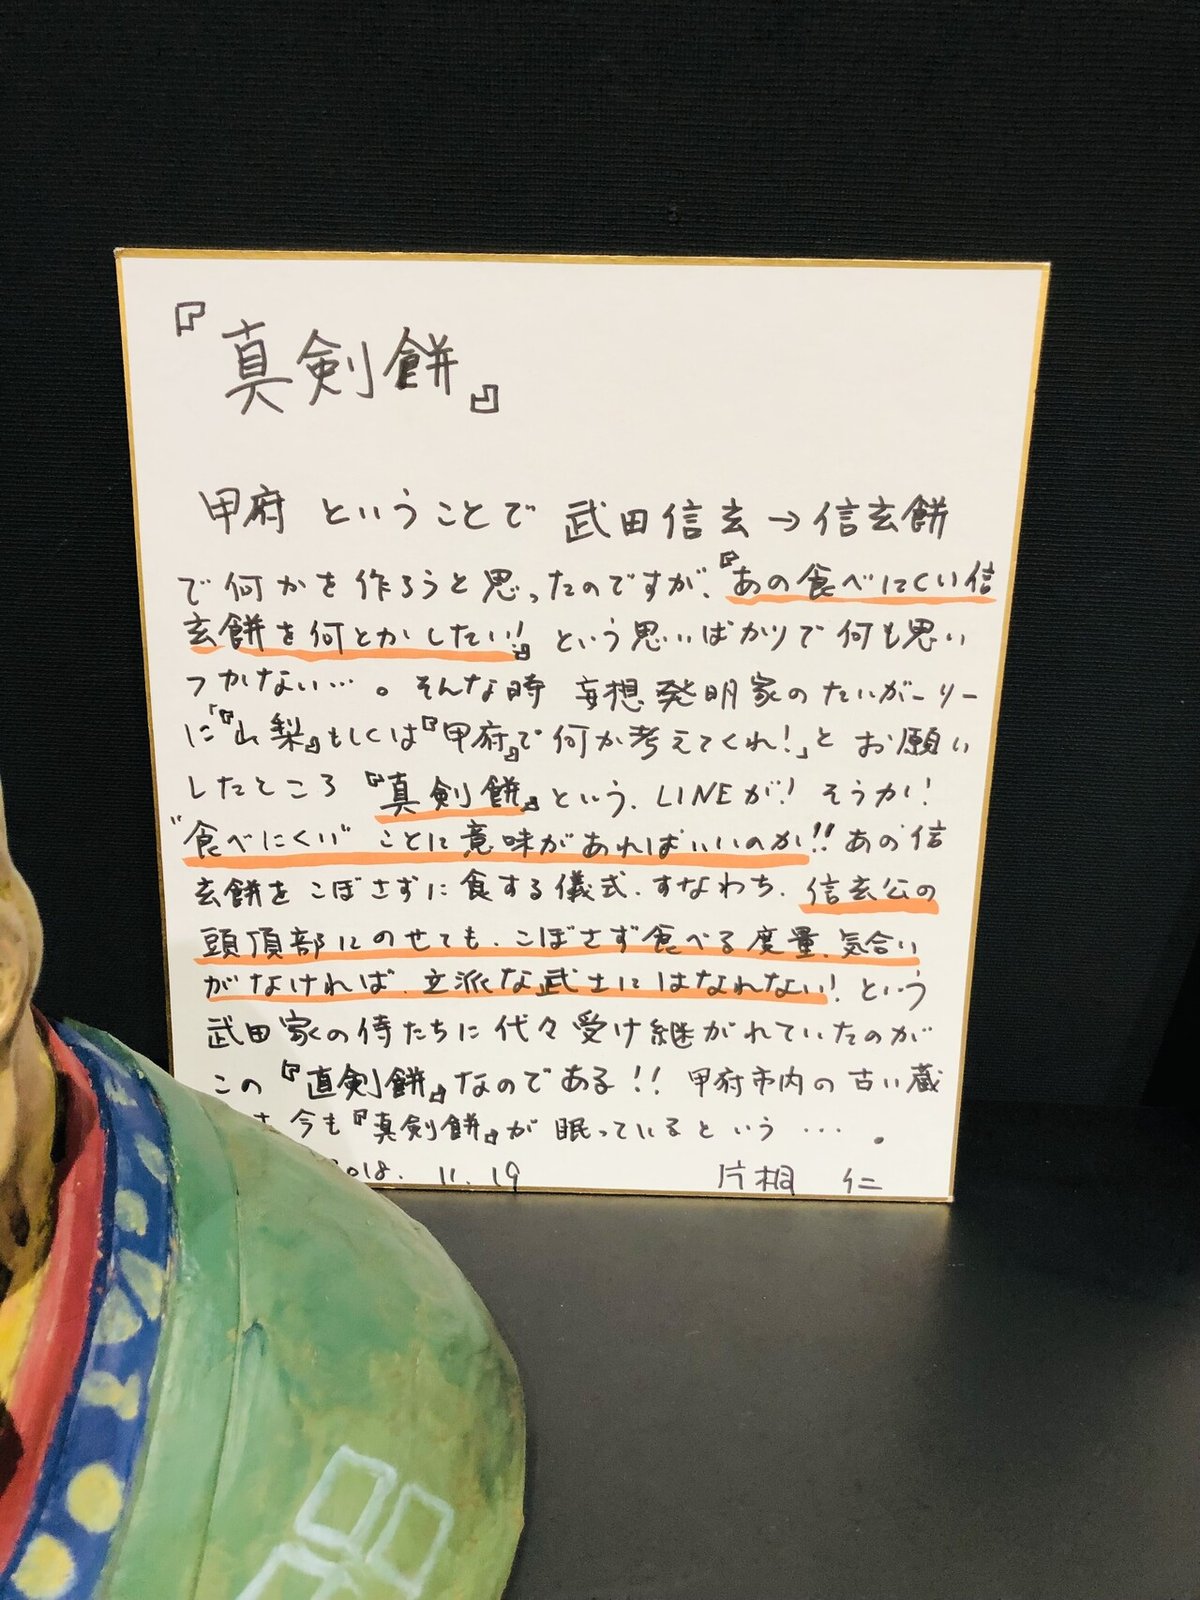 『真剣餅』
甲府ということで 武田信玄→信玄餅
で何かを作ろうと思ったのですが、『あの食べにくい信
玄餅を何とかしたい!』という思いばかりで何も思い
つかない…。そんな時 妄想発明家のたいがーりー
に「『山梨』もしくは『甲府』で何か考えてくれ!」とお願い
したところ『真剣餅』という、LINEが!そうか!
"食べにくい"ことに意味があればいいのか!!あの信
玄餅をこぼさずに食する儀式、すなわち、信玄公の
頭頂部にのせても、こぼさず食べる度量、気合い
がなければ、立派な武士にはなれない!という
武田家の侍たちに代々受け継がれていたのが
この『真剣餅』なのである!!甲府市内の古い蔵
今も『真剣餅』が眠っているという…。
2018. 11. 19 片桐 仁